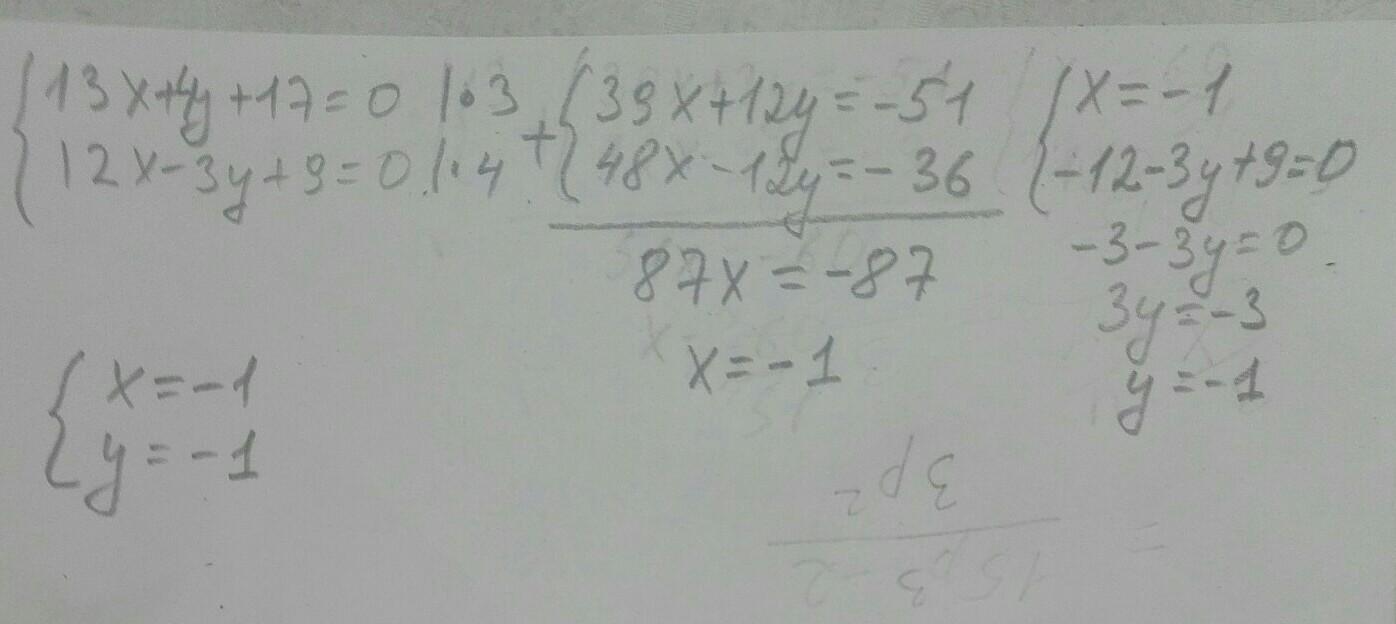 13x+4y+17=0 |·3
12x-3y+9=0 |·4
+
39x+12y=-51
48x-12y=-36
87x=-87
x=-1
x=-1
-12-3y+9=0
-3-3y=0
3y=-3
y=-1
x=-1
y=-1
3p²